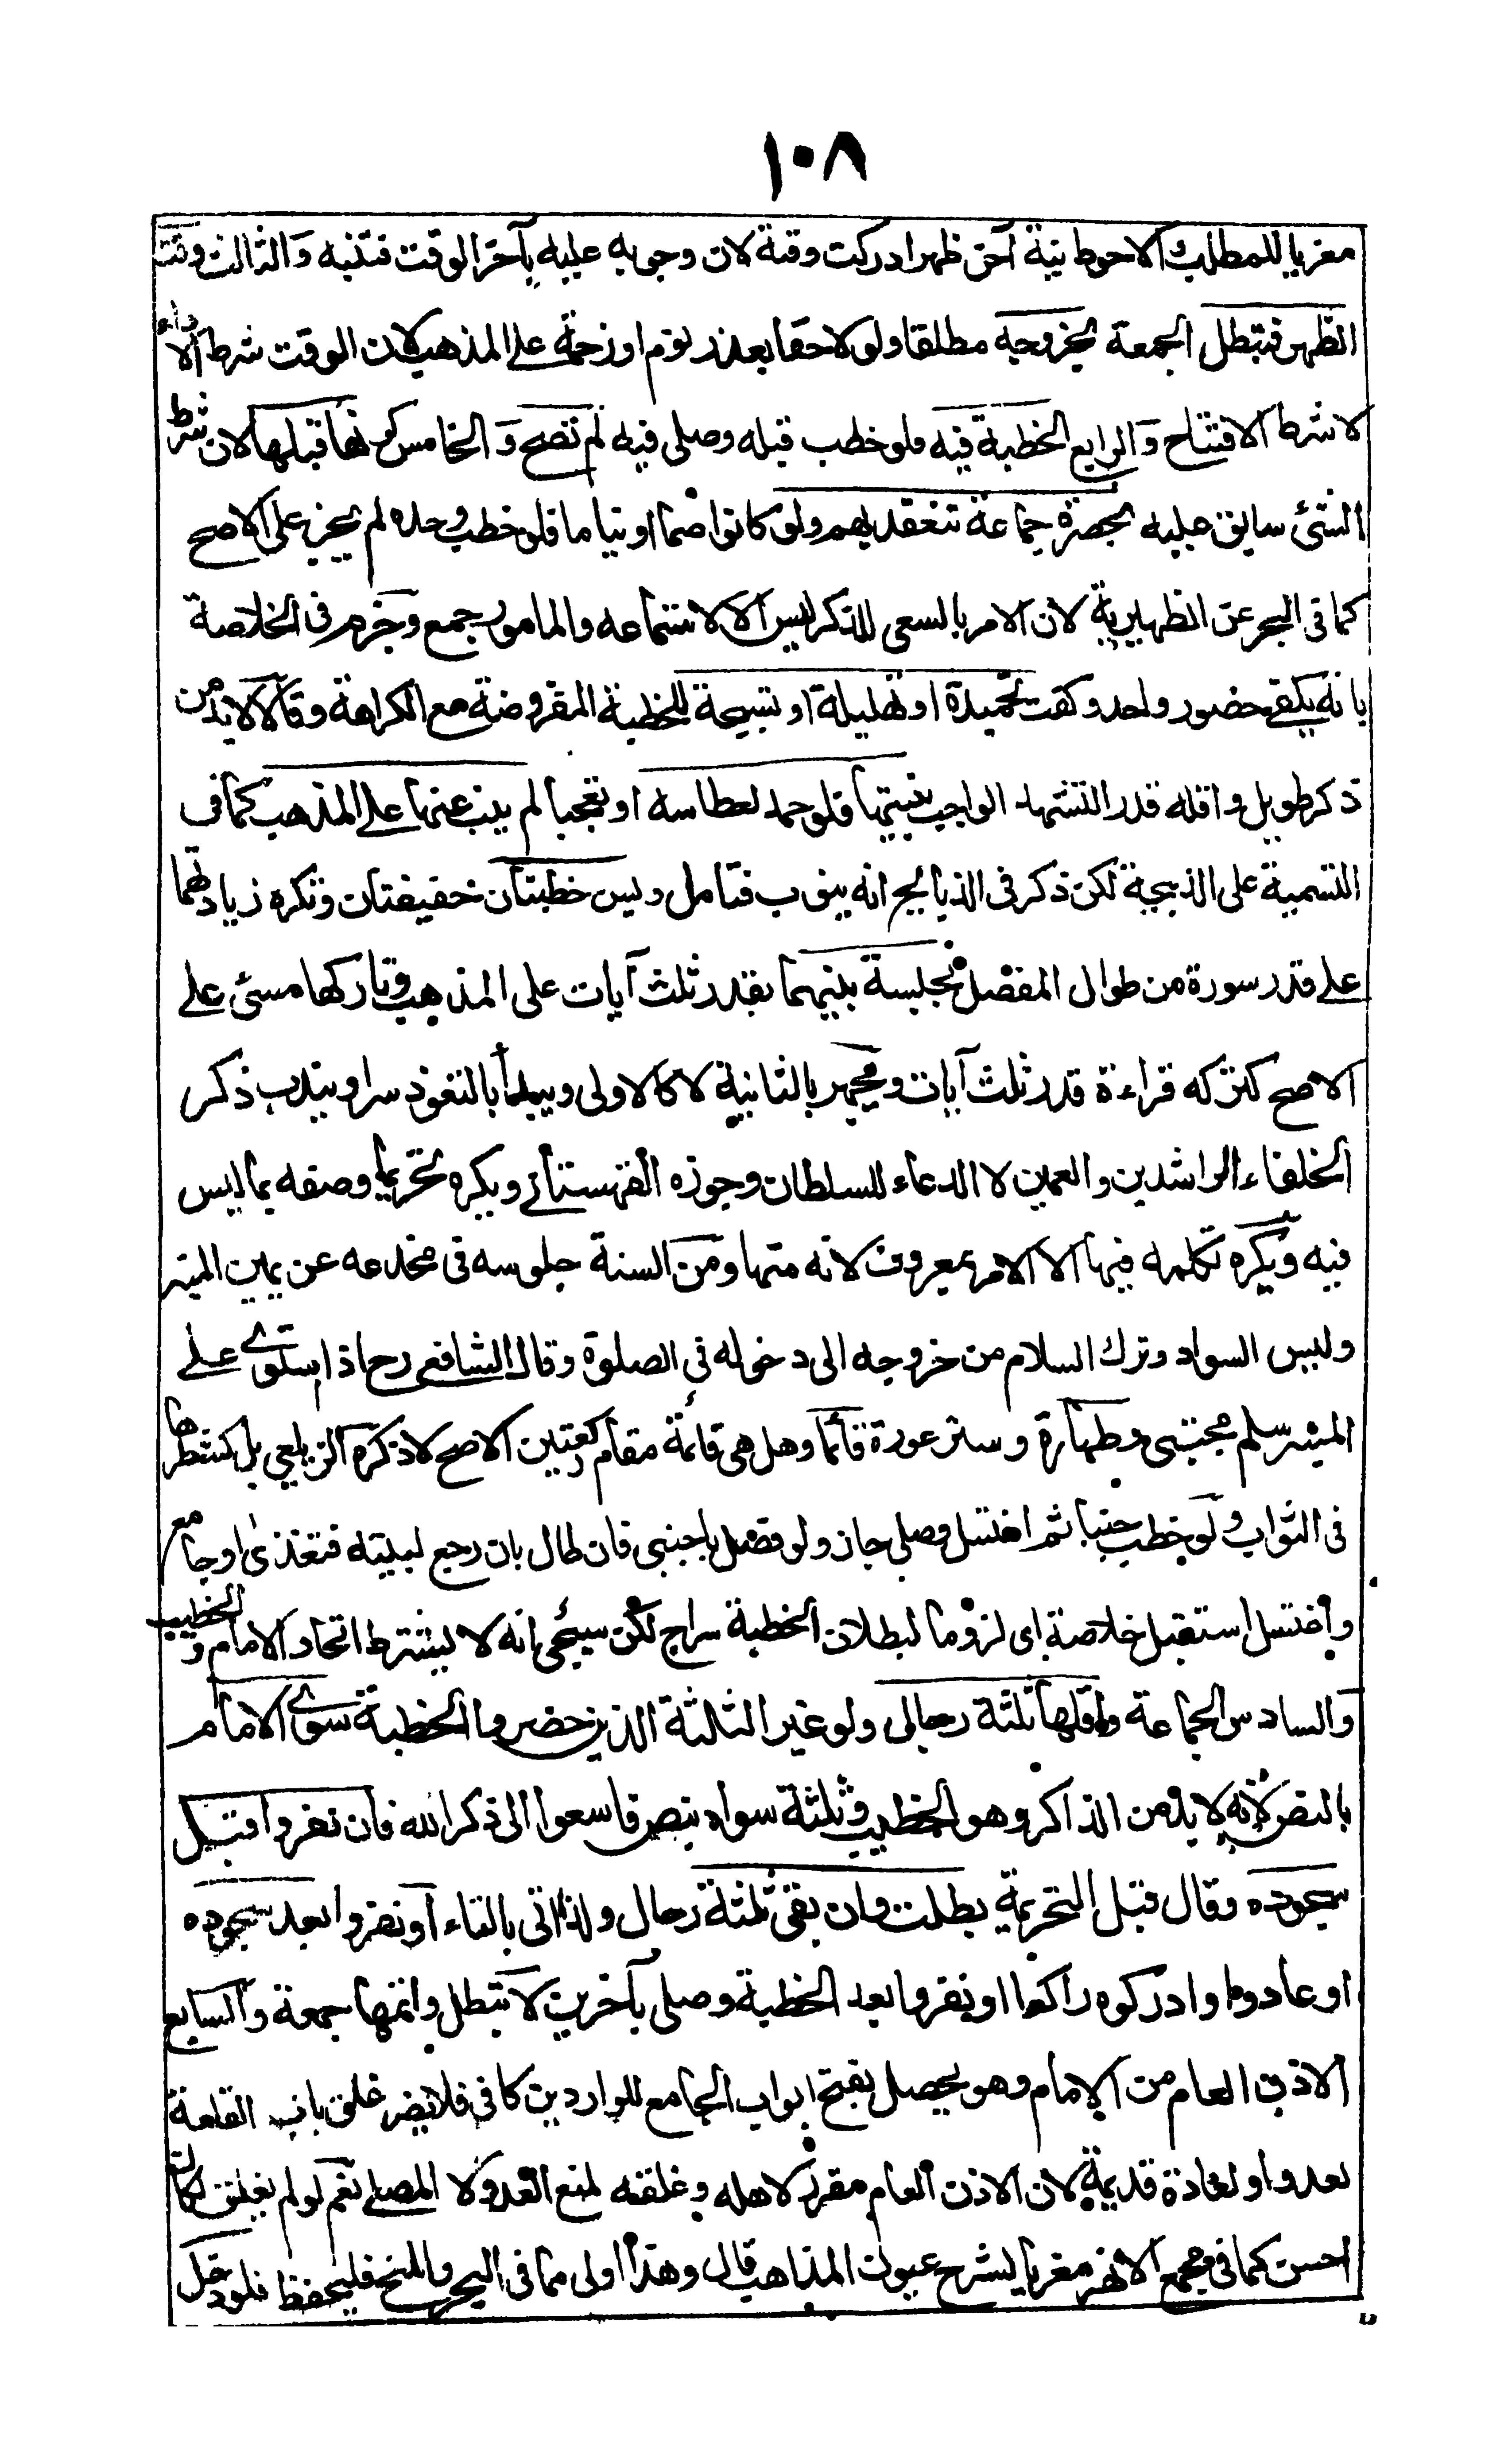 ١٠٨
معزيا للمطلب الاحوط نية آخر ظهر ادركت وقته لان وجوبه عليه بآخر الوقت فتنبه و الثالث وقت
الظهر فتبطل الجمعة بخروجه مطلقا ولو لاحقا بعذر نوم او زحمة على المذهب لان الوقت شرط الاداء
لا شرط الافتتاح و الرابع الخطبة فيه فلو خطب قبله وصلى فيه لم تصح و الخامس كونها قبلها لان شرط
الشئ سابق عليه بحضرة جماعة تنعقد بهم ولو كانوا صما او نياما فلو خطب وحده لم يجز على الاصح
كما فى البحر عن الظهيرية لان الامر بالسعى للذكر ليس الا لاستماعه والمامور جمع وجزم فى الخلاصة
بانه يكفى حضور واحد وكفت تحميدة او تهليلة او تسبيحة للخطبة المفروضة مع الكراهة وقالا لابد من
ذكر طويل واقله قدر التشهد الواجب بنيتها فلو حمد لعطاسه او تعجبا لم ينب عنها على المذهب كما فى
التسمية على الذبيحة لكن ذكر فى الذبايح انه ينوب فتامل ويسن خطبتان خفيفتان وتكره زيادتهما
على قدر سورة من طوال المفصل بجلسة بينهما بقدر ثلث آيات على المذهب وتاركها مسئ على
الاصح كتركه قراءة قدر ثلث آيات ويجهر بالثانية لا كالاولى ويبدأ بالتعوذ سرا ويندب ذكر
الخلفاء الراشدين والعمين لا الدعاء للسلطان وجوزه القهستانے ويكره تحريما وصفه بما ليس
فيه ويكره تكلمه فيها الا لامر بمعروف لانه منها ومن السنة جلوسه فى مخدعه عن يمين المنبر
ولبس السواد وترك السلام من خروجه الى دخوله فى الصلوة وقال الشافعى رح اذا استوے على
المنبر سلم مجتبى وطهارة وستر عورة قائما وهل هى قائمة مقام ركعتين الاصح لا ذكره الزيلعى بل كشطرها
فى الثواب ولو خطب جنبا ثم اغتسل وصلى جاز ولو فصل باجنبى فان طال بان رجع لبيته فتغذى او جامع
واغتسل استقبل خلاصة اى لزوما لبطلان الخطبة سراج لكن سيجئ انه لا يشترط اتحاد الامام و الخطيب
والسادس الجماعة واقلها ثلثة رجال ولو غير الثلثة الذين حضروا الخطبة سوے الامام
بالنص لانه لا بد من الذاكر وهو الخطيب وثلثة سواه بنص فاسعوا الى ذكر الله فان نفروا قبل
سجوده وقالا قبل التحريمة بطلت وان بقى ثلثة رجال ولذا اتى بالتاء او نفروا بعد سجوده
او عادوا وادركوه راكعا او نفروا بعد الخطبة وصلى بآخرين لا تبطل واتمها جمعة والسابع
الاذن العام من الامام وهو يحصل بفتح ابواب الجامع للواردين كافى فلا يضر غلق باب القلعة
لعدو او لعادة قديمة لان الاذن العام مقرر لاهله وغلقه لمنع العدو لا المصلے نعم لو لم يغلق لكان
احسن كما فى مجمع الانهر معزيا لشرح عيون المذاهب قال وهذا اولى مما فى البحر والمنح فليحفظ فلو دخل